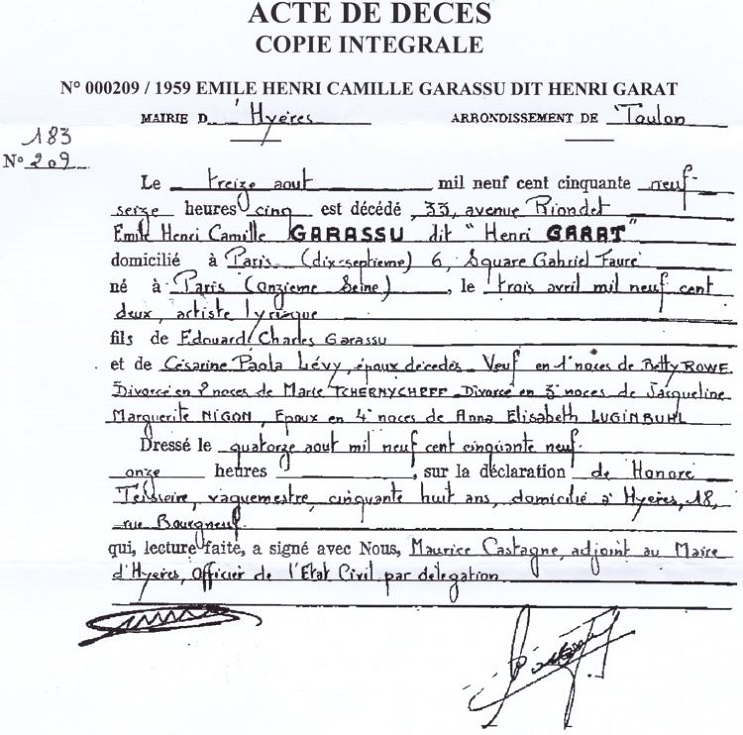 ACTE DE DECES
COPIE INTEGRALE
N° 000209 / 1959 EMILE HENRI CAMILLE GARASSU DIT HENRI GARAT
MAIRIE D'Hyères ARRONDISSEMENT DE Toulon
183
N° 209
Le treize aout mil neuf cent cinquante neuf
seize heures cinq est décédé, 33, avenue Riondet
Emile Henri Camille GARASSU dit "Henri GARAT"
domicilié à Paris (dix-septieme) 6, Square Gabriel Fauré
né à Paris (onzieme Seine), le trois avril mil neuf cent
deux, artiste lyrique
fils de Edouard Charles Garassu
et de Césarine Paola Lévy, époux décédés. Veuf en 1° noces de Betty ROWE.
Divorcé en 2° noces de Marie TCHERNYCHEFF. Divorcé en 3° noces de Jacqueline
Marguerite NIGON, Epoux en 4° noces de Anna Elisabeth LUGINBUHL
Dressé le quatorze aout mil neuf cent cinquante neuf
onze heures, sur la déclaration de Honoré
Teisseire, vaguemestre, cinquante huit ans, domicilié à Hyères, 18,
rue Bourgneuf.
qui, lecture faite, a signé avec Nous, Maurice Castagne, adjoint au Maire
d'Hyères, Officier de l'Etat Civil par délégation